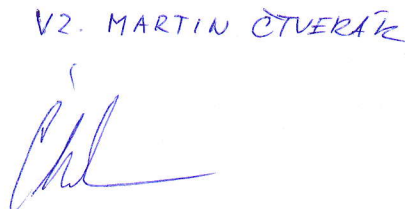 VZ. MARTIN ČTVERÁK